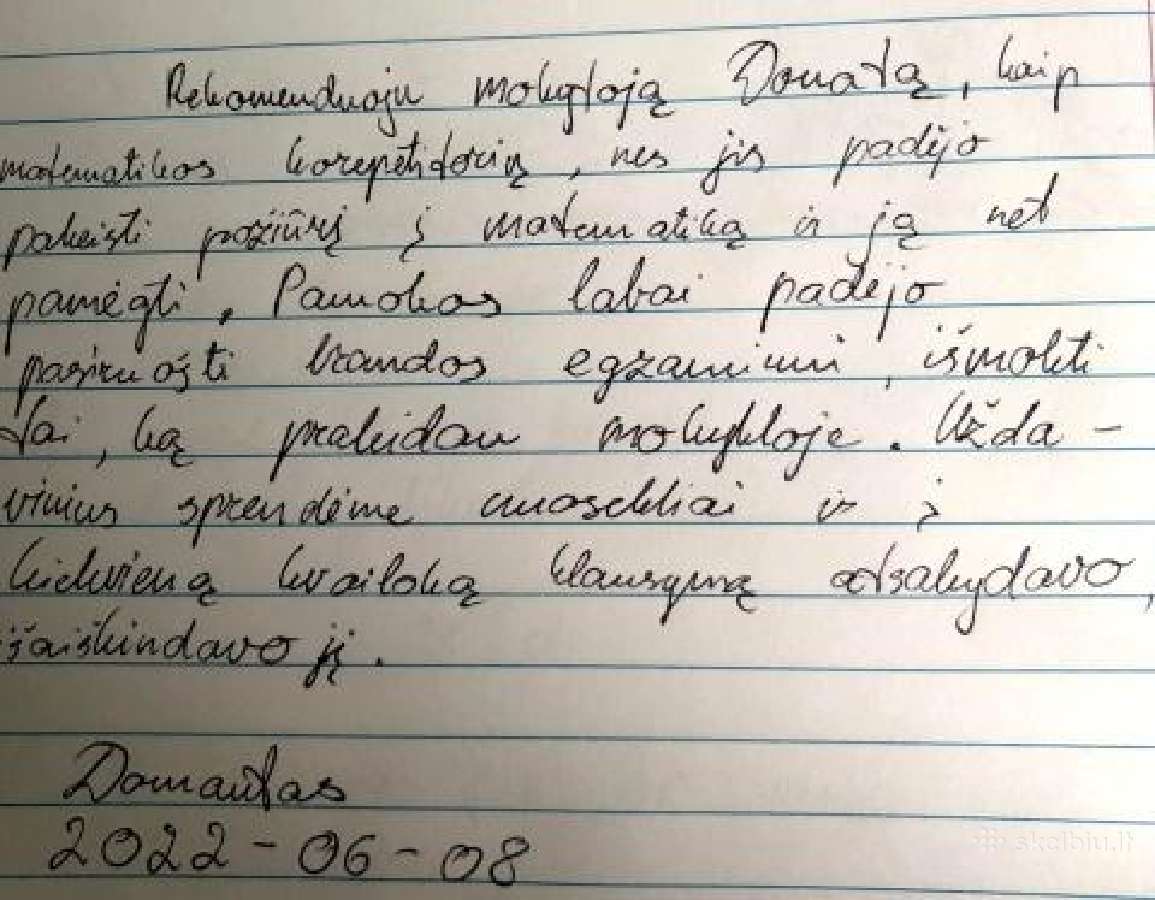 Rekomenduoju mokytoją Donatą, kaip
matematikos korepetitorių, nes jis padėjo
pakeisti požiūrį į matematiką ir ją net
pamėgti. Pamokos labai padėjo
pasiruošti brandos egzaminui, išmokti
tai, ką praleidau mokykloje. Užda-
vinius sprendėme nuosekliai ir į
kiekvieną kvailoką klausymą atsakydavo,
išaiškindavo jį.
Domantas
2022-06-08
skelbiu.lt